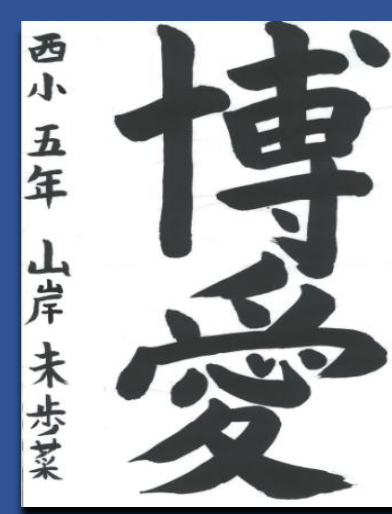 博愛
西小 五年 山岸 未歩菜